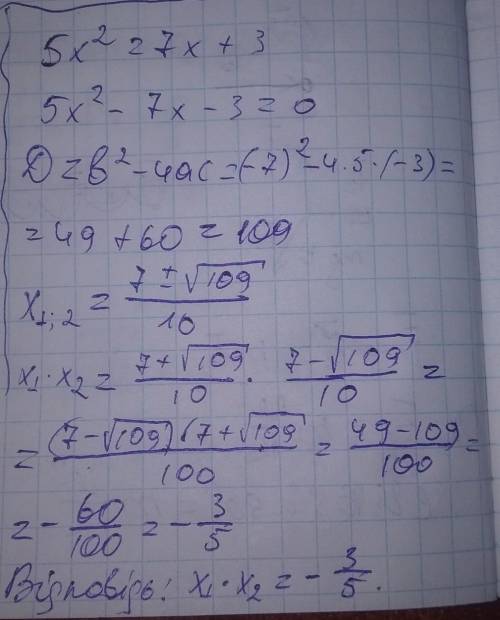 5x² = 7x + 3
5x² - 7x - 3 = 0
D = b² - 4ac = (-7)² - 4·5·(-3) =
= 49 + 60 = 109
x₁;₂ = (7 ± √109)/10
x₁·x₂ = (7 + √109)/10 · (7 - √109)/10 =
= (7 - √109)(7 + √109)/100 = (49 - 109)/100 =
= - 60/100 = - 3/5
Відповідь: x₁·x₂ = - 3/5.